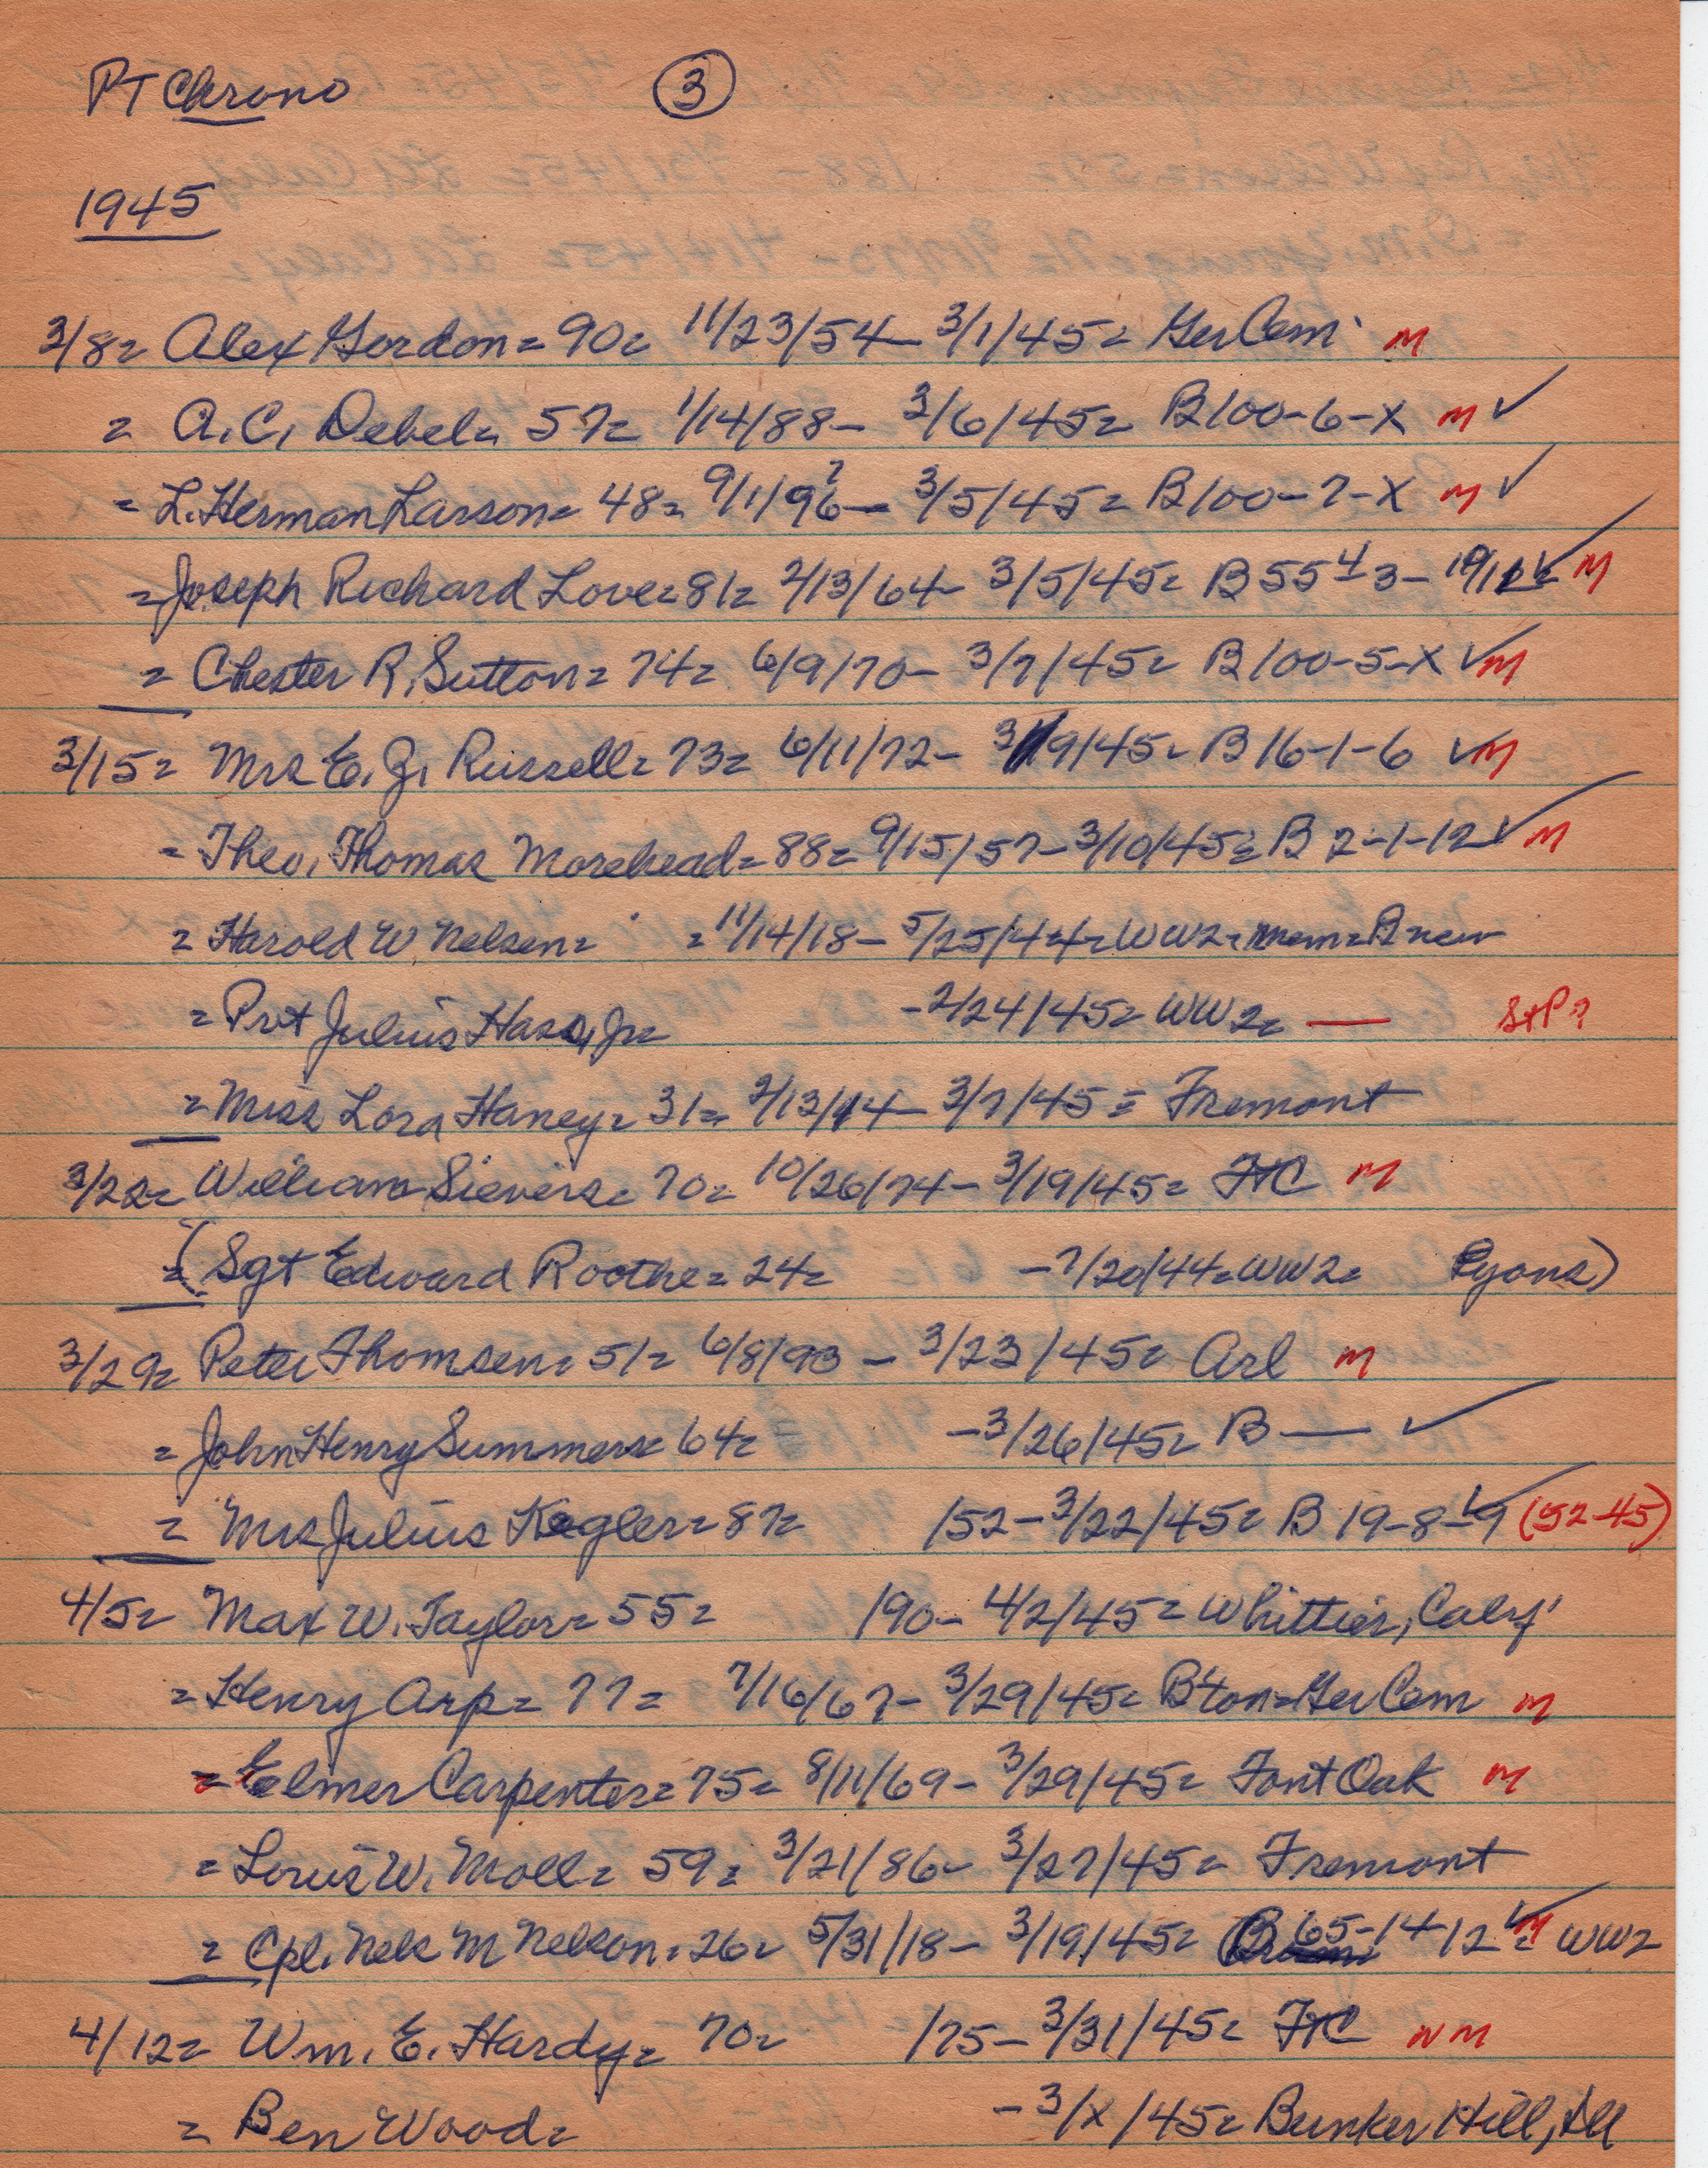 PT Chrono ③
1945
3/8= Alex Gordon= 90= 11/23/54- 3/1/45= Ger Cem M
= A.C. Debel= 57= 1/14/88- 3/6/45= B100-6-X M ✓
= L. Herman Larson= 48= 9/1/96?- 3/5/45= B100-7-X M ✓
= Joseph Richard Love= 81= 2/13/64- 3/5/45= B55 3- ✓ M
= Chester R. Sutton= 74= 6/9/70- 3/7/45= B100-5-X ✓ M
3/15= Mrs E. J. Russell= 73= 6/11/72- 3/9/45= B16-1-6 ✓ M
= Theo. Thomas Morehead= 88= 9/15/57- 3/10/45= B 2-1-12 ✓ M
= Harold W Nelsen= = 11/14/18- 5/25/44= WW2= mem= B new
= Pvt Julius Hass, Jr= -2/24/45= WW2= — StP?
= Miss Lora Haney= 31= 2/13/14- 3/7/45= Fremont
3/22= William Sievers= 70= 10/26/74- 3/19/45= FtC M
= (Sgt Edward Roothe= 24= -7/20/44= WW2= Lyons)
3/29= Peter Thomsen= 51= 6/8/93- 3/23/45= Arl M
= John Henry Summers= 64= -3/26/45= B — ✓
= Mrs Julius Kegler= 87= /52- 3/22/45= B 19-8-9 ✓ (52-45)
4/5= Max W. Taylor= 55= /90- 4/2/45= Whittier, Calif
= Henry Arp= 77= 7/16/67- 3/29/45= B'ton= Ger Cem M
= Elmer Carpenter= 75= 8/11/69- 3/29/45= Font Oak M
= Louis W. Moll= 59= 3/21/86- 3/27/45= Fremont
= Cpl. Nels M Nelson= 26= 5/31/18- 3/19/45= B 65-14-12 ✓ M = WW2
4/12= Wm. E. Hardy= 70= /75- 3/31/45= FtC NM
= Ben Wood= -3/x/45= Bunker Hill, Ill